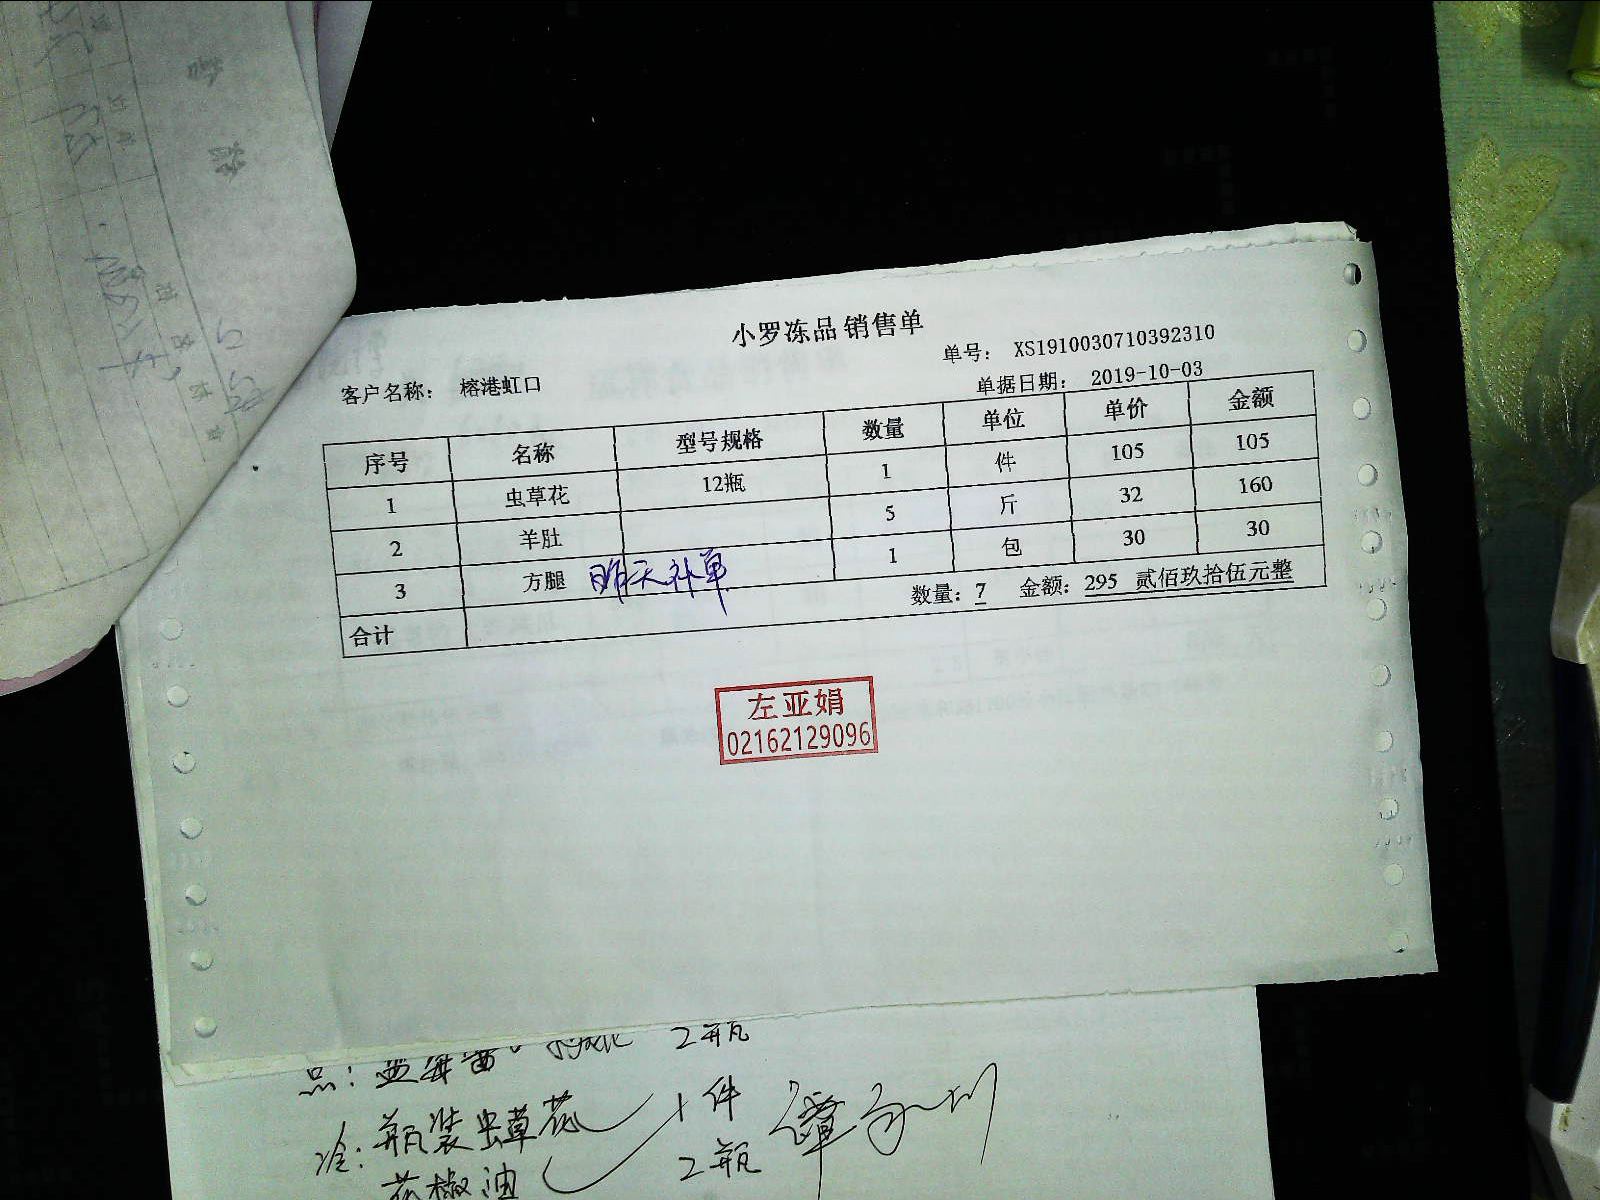 小罗冻品 销售单
单号: XS1910030710392310
客户名称: 榕港虹口
单据日期: 2019-10-03
序号 名称 型号规格 数量 单位 单价 金额
1 虫草花 12瓶 1 件 105 105
2 羊肚 5 斤 32 160
3 方腿 1 包 30 30
昨天补单
合计 数量: 7 金额: 295 贰佰玖拾伍元整
左亚娟
02162129096
品: 2瓶
冷: 瓶装虫草花 1件
花椒油 2瓶